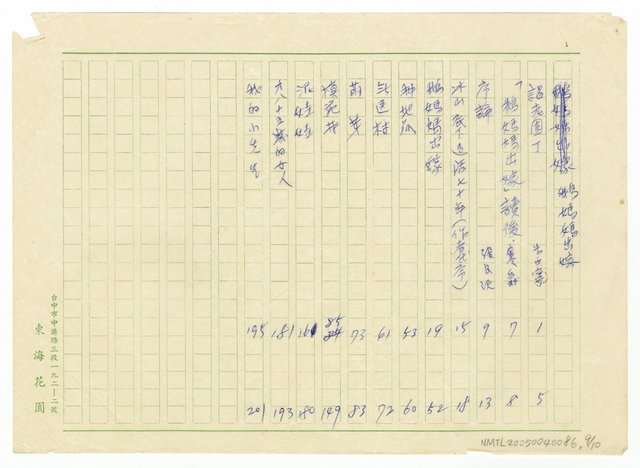 鵝媽媽出嫁 鵝媽媽出嫁
老園丁 1 5
「鵝媽媽出嫁」讀後 7 8
序論 張良澤 9 13
冰山底下過活七十年(作者代序) 15 18
鵝媽媽出嫁 19 52
種地瓜 53 60
无医村 61 72
萌芽 73 83
模范村 85 84 149
泥娃娃 180
才八十五歲的女人 181 193
我的小先生 195 201
台中市中港路三段一九二―二號
東海花園
NMTL20050040086, 9/10